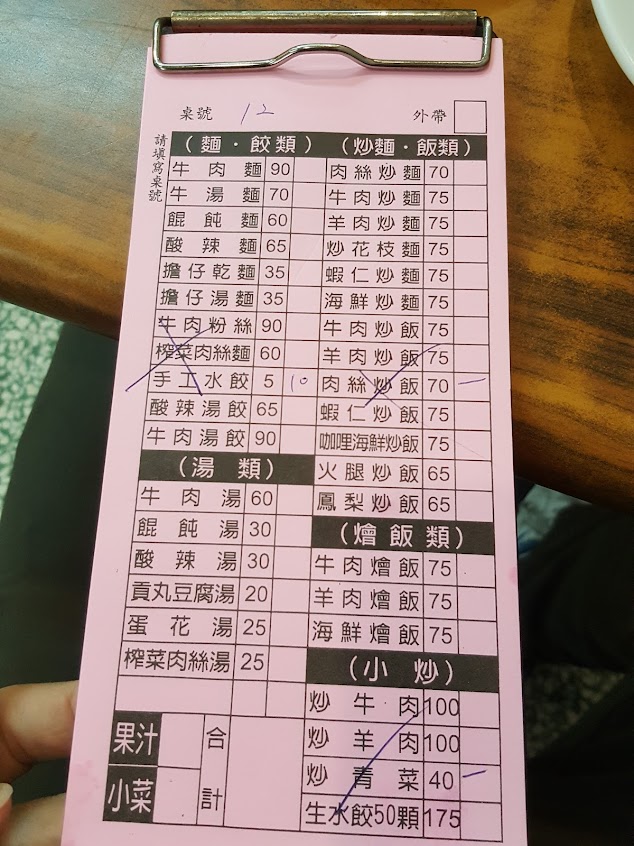 桌號 12 外帶
請填寫桌號
(麵·餃類)
牛肉麵 90
牛湯麵 70
餛飩麵 60
酸辣麵 65
擔仔乾麵 35
擔仔湯麵 35
牛肉粉絲 90
榨菜肉絲麵 60
手工水餃 5 10
酸辣湯餃 65
牛肉湯餃 90
(湯類)
牛肉湯 60
餛飩湯 30
酸辣湯 30
貢丸豆腐湯 20
蛋花湯 25
榨菜肉絲湯 25
果汁
小菜
合計
(炒麵·飯類)
肉絲炒麵 70
牛肉炒麵 75
羊肉炒麵 75
炒花枝麵 75
蝦仁炒麵 75
海鮮炒麵 75
牛肉炒飯 75
羊肉炒飯 75
肉絲炒飯 70 一
蝦仁炒飯 75
咖哩海鮮炒飯 75
火腿炒飯 65
鳳梨炒飯 65
(燴飯類)
牛肉燴飯 75
羊肉燴飯 75
海鮮燴飯 75
(小炒)
炒牛肉 100
炒羊肉 100
炒青菜 40 一
生水餃50顆 175